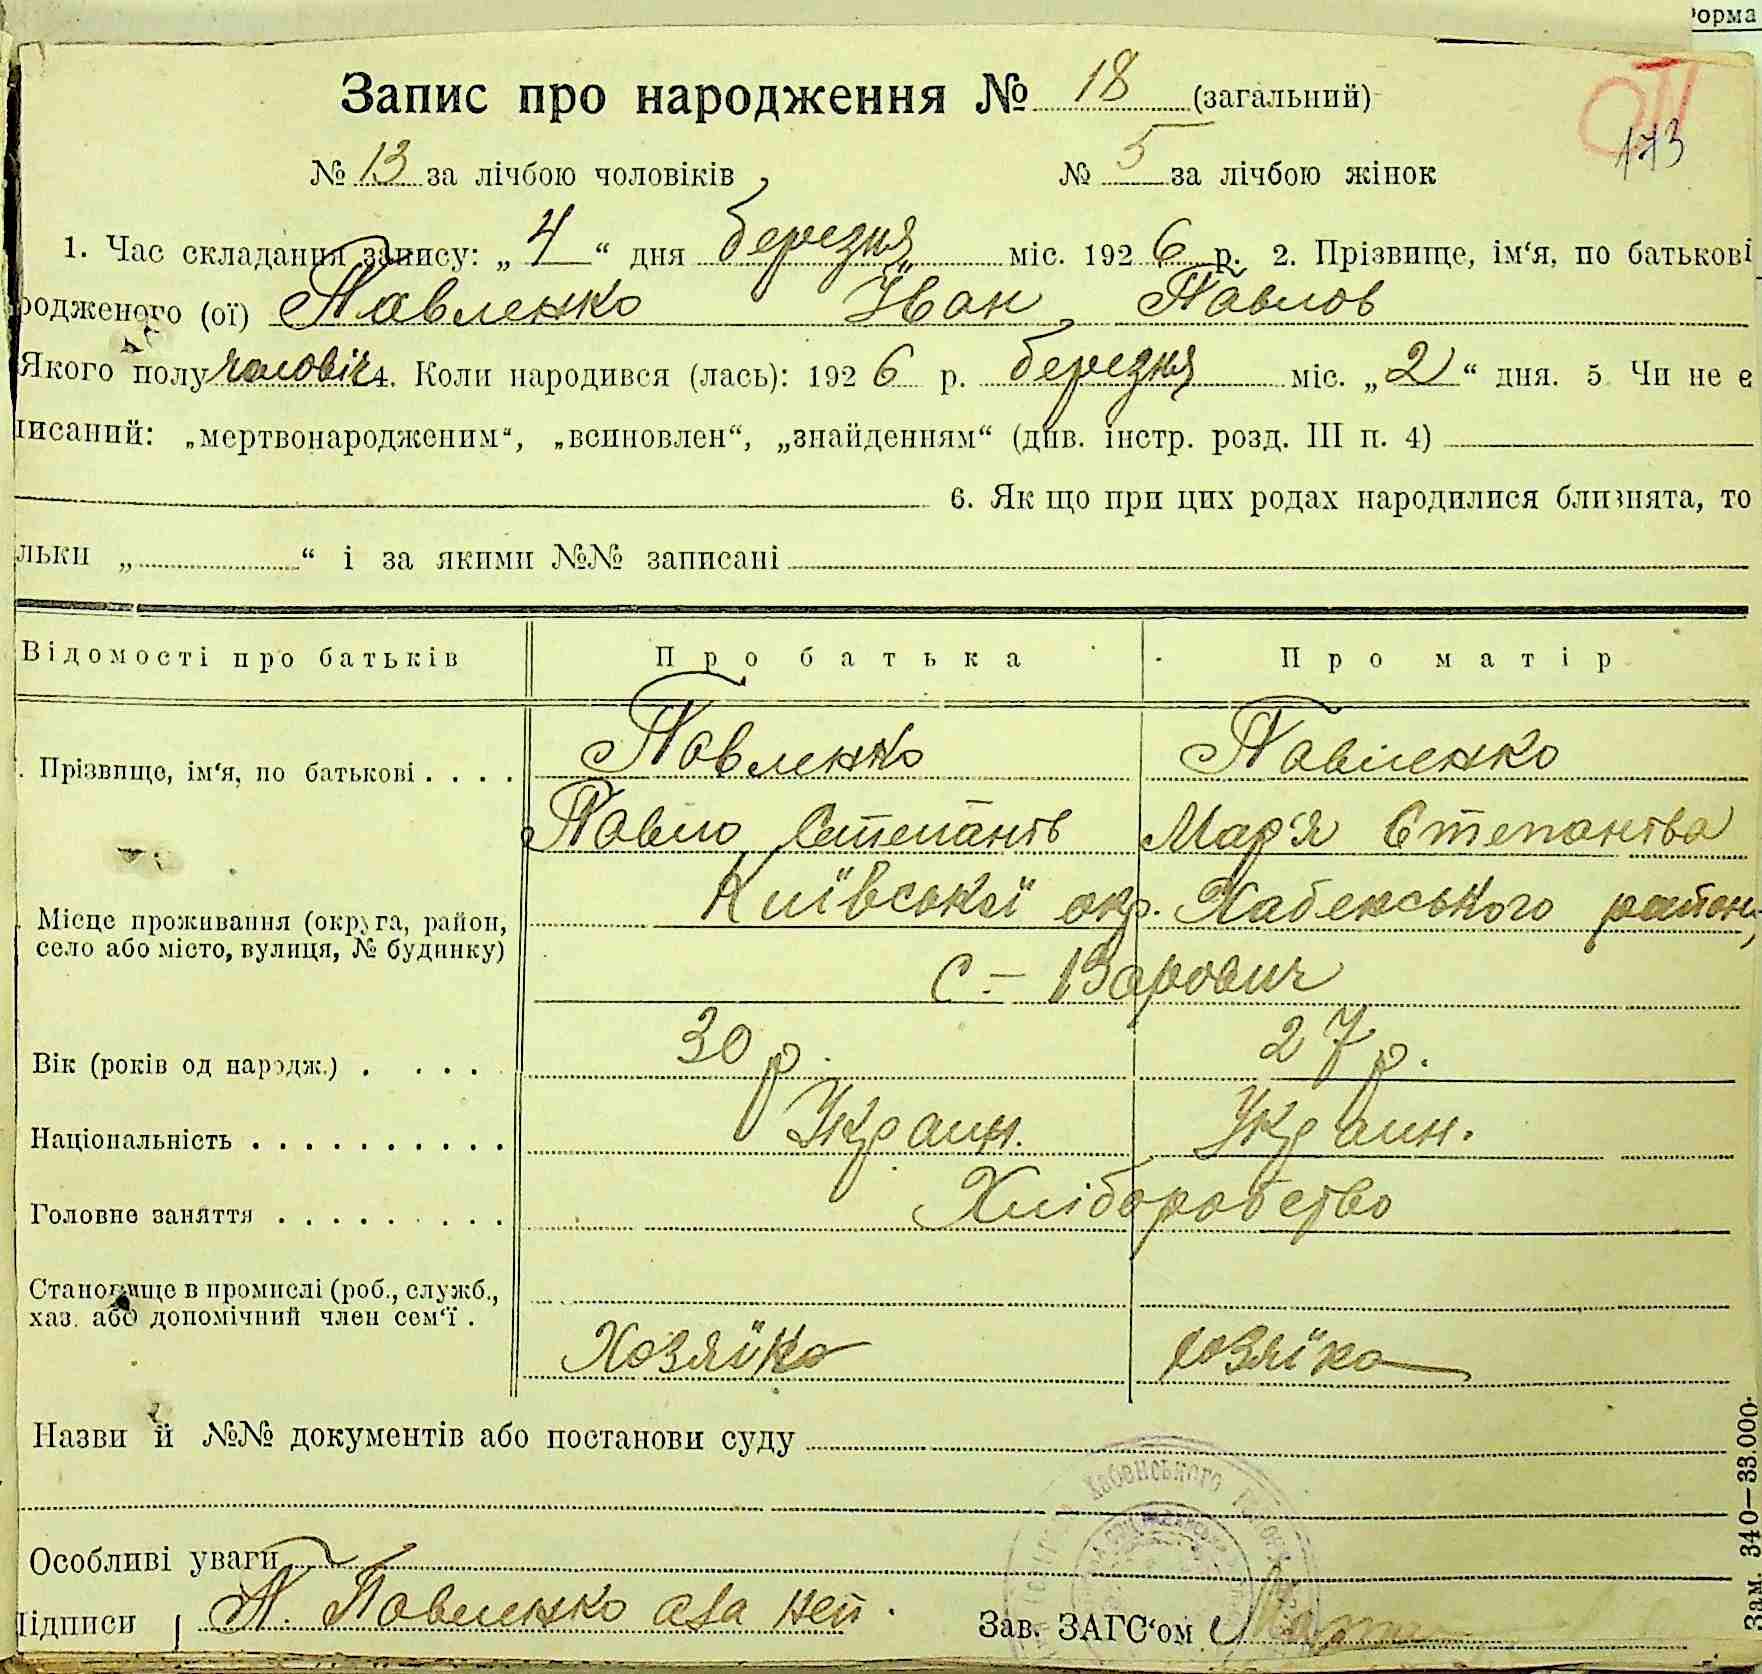 орма
Запис про народження № 18 (загальний)
173
№ 13 за лічбою чоловіків, № 5 за лічбою жінок
1. Час складання запису: „ 4 “ дня березня міс. 1926 р. 2. Прізвище, ім‘я, по батькові
родженого (ої) Павленко Іван Павлов
Якого полу чоловіч 4. Коли народився (лась): 1926 р. березня міс. „ 2 “ дня. 5 Чи не є
писаний: „мертвонародженим“, „всиновлен“, „знайденням“ (див. інстр. розд. III п. 4)
6. Як що при цих родах народилися близнята, то
льки „ “ і за якими №№ записані
Відомості про батьків Про батька Про матір
. Прізвище, ім‘я, по батькові . . . . Павленко Павленко
Павло Степанів Мар'я Степанівва
Місце проживання (округа, район, Київської окр. Хабенського район,
село або місто, вулиця, № будинку) с – Варович
Вік (років од народж.) . . . . 30 р. 27 р.
Національність . . . . . . . . . . Украин. Украин.
Головне заняття . . . . . . . . . Хліборобство
Становище в промислі (роб., служб.,
хаз. або допомічний член сем‘ї .
Хозяїко хозяїка
Назви й №№ документів або постанови суду
Хабенського
Особливі уваги
Підписи П. Павленко
Зав. ЗАГС‘ом
Зам. 340—33.000.